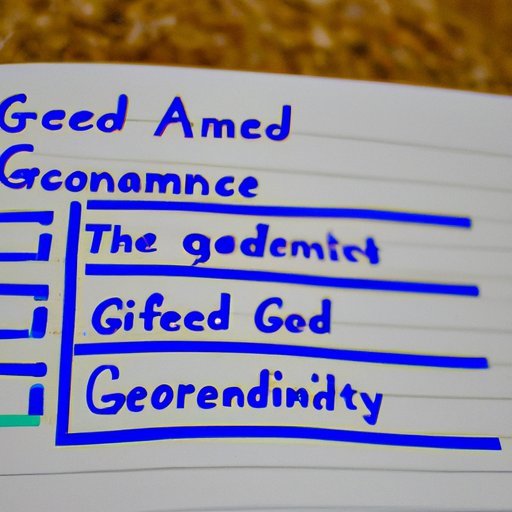 Geed Amed
Gconamnce
The godemict
Gifeed Ged
Georendinidty